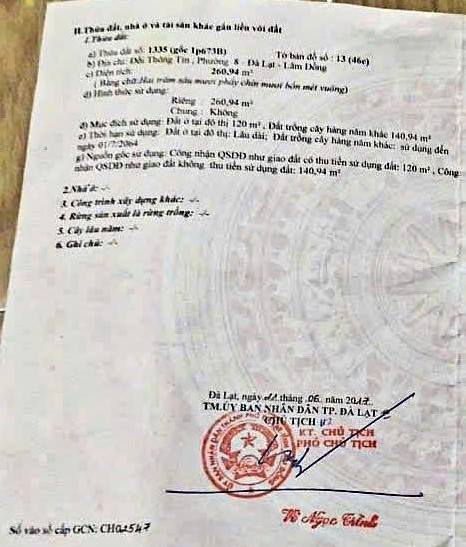 II.Thửa đất, nhà ở và tài sản khác gắn liền với đất
1.Thửa đất:
a) Thửa đất số: 1335 (gốc 1p673B) Tờ bản đồ số : 13 (46e)
b) Địa chỉ: Đồi Thông Tin , Phường 8 - Đà Lạt - Lâm Đồng
c) Diện tích: 260,94 m²
( Bằng chữ:Hai trăm sáu mươi phẩy chín mươi bốn mét vuông)
d) Hình thức sử dụng:
Riêng : 260,94 m²
Chung : Không
đ) Mục đích sử dụng: Đất ở tại đô thị 120 m² , Đất trồng cây hàng năm khác 140,94 m²
e) Thời hạn sử dụng: Đất ở tại đô thị: Lâu dài; Đất trồng cây hàng năm khác: sử dụng đến
ngày 01/7/2064
g) Nguồn gốc sử dụng: Công nhận QSDĐ như giao đất có thu tiền sử dụng đất: 120 m² , Công
nhận QSDĐ như giao đất không thu tiền sử dụng đất: 140,94 m²
2.Nhà ở: -/-
3. Công trình xây dựng khác: -/-
4. Rừng sản xuất là rừng trồng: -/-
5. Cây lâu năm: -/-
6. Ghi chú: -/-
Đà Lạt, ngày tháng .06. năm 2017.
TM.ỦY BAN NHÂN DÂN TP. ĐÀ LẠT
CHỦ TỊCH
KT. CHỦ TỊCH
PHÓ CHỦ TỊCH
Võ Ngọc Trình
Số vào sổ cấp GCN: CH02547